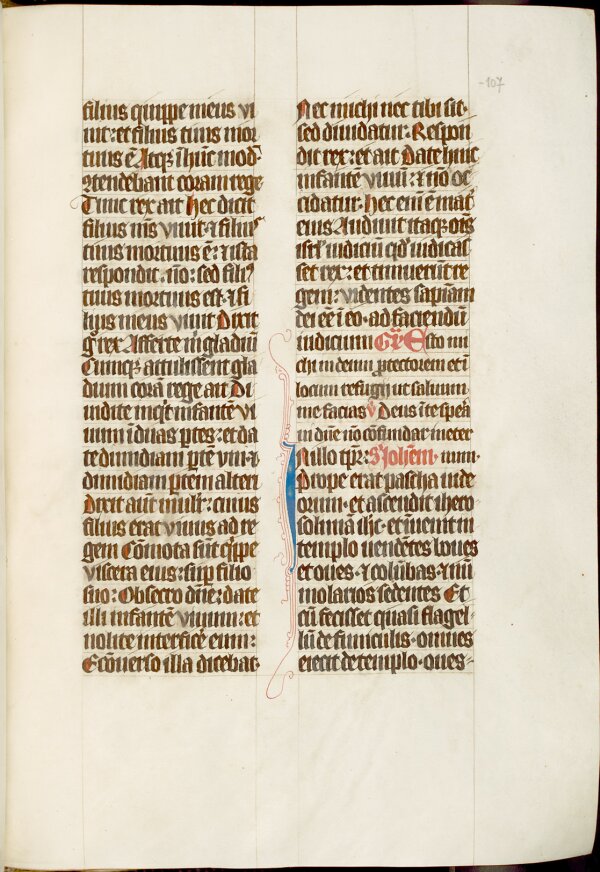 -107
filius quippe meus vi
uit: et filius tuus mor
tuus ē. Atq; ī hūc modū
ↄtendebant coram rege
Tunc rex ait Hec dicit
filius mīs viuit. ⁊ filiꝰ
tuus mortuus ē: ⁊ ista
respondit. nō: sed filiꝰ
tuus mortuus est. ⁊ fi
lius meus viuit Dixit
gͦ rex Afferte m̄ gladiū
Cumq; attulissent gla
dium corā rege ait Di
uidite inq̄t infantē vi
uum ī duas ꝑtes: et da
te dimidiam ꝑtē vni ⁊
dimidiam ꝑtem alteri
Dixit aūt mulr̄: cuius
filius erat viuus ad re
gem Cōmota sūt q̄ppe
viscera eius: suꝑ filio
suo: Obsecro dn̄e: date
illi infantē viuum: et
nolite interficē eum:
Ecōuerso illa dicebat
Nec michi nec tibi sit.
sed diuidatur. Respon
dit rex: et ait Date huic
infantē viuū: ⁊ nō oc
cidatur. Hec eni ē mat̄
eius Audiuit itaq; om̄s
isrl̄ iudiciū qd̓ iudicas
set rex: et timuerūt re
gem: videntes sapiam
dei eē ī eo. ad faciendū
iudicium Gr̄ Esto mi
chi in deum ꝓtectorem et ī
locum refugij ut saluum
me facias v̄ Deus ī te speā
ui dn̄e nō cōfundar ī eter
Nillo tꝑr: S Iohem. num.
Prope erat pascha iude
orum. et ascendit ihero
solima ihc̄. et īuenit in
templo uendētes boues
et oues. ⁊ colūbas. ⁊ nū
molarios sedentes Et
cū fecisset quasi flagel
lū de funiculis. omnes
eiecit de templo. oues